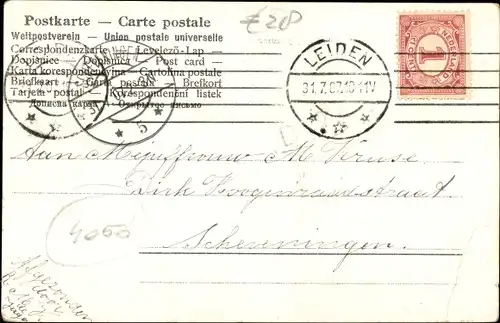 € 208
Postkarte — Carte postale
Weltpostverein — Union postale universelle
Correspondenzkarte — Levelező-Lap
Dopisnice — Dopisnica — Post card
Karta korespondencyjna — Cartolina postale
Briefkaart — Carte postale — Brefkort
Tarjeta postal — Korespondenční listek
Дописна карта — Открытое письмо
5
LEIDEN
31.7.07.10-11V
NEDERLAND
1
CENT
Aan Mejuffrouw M. Kruse
Dirk Hoogenraadstraat
Scheveningen
4060
Afgezonden
door